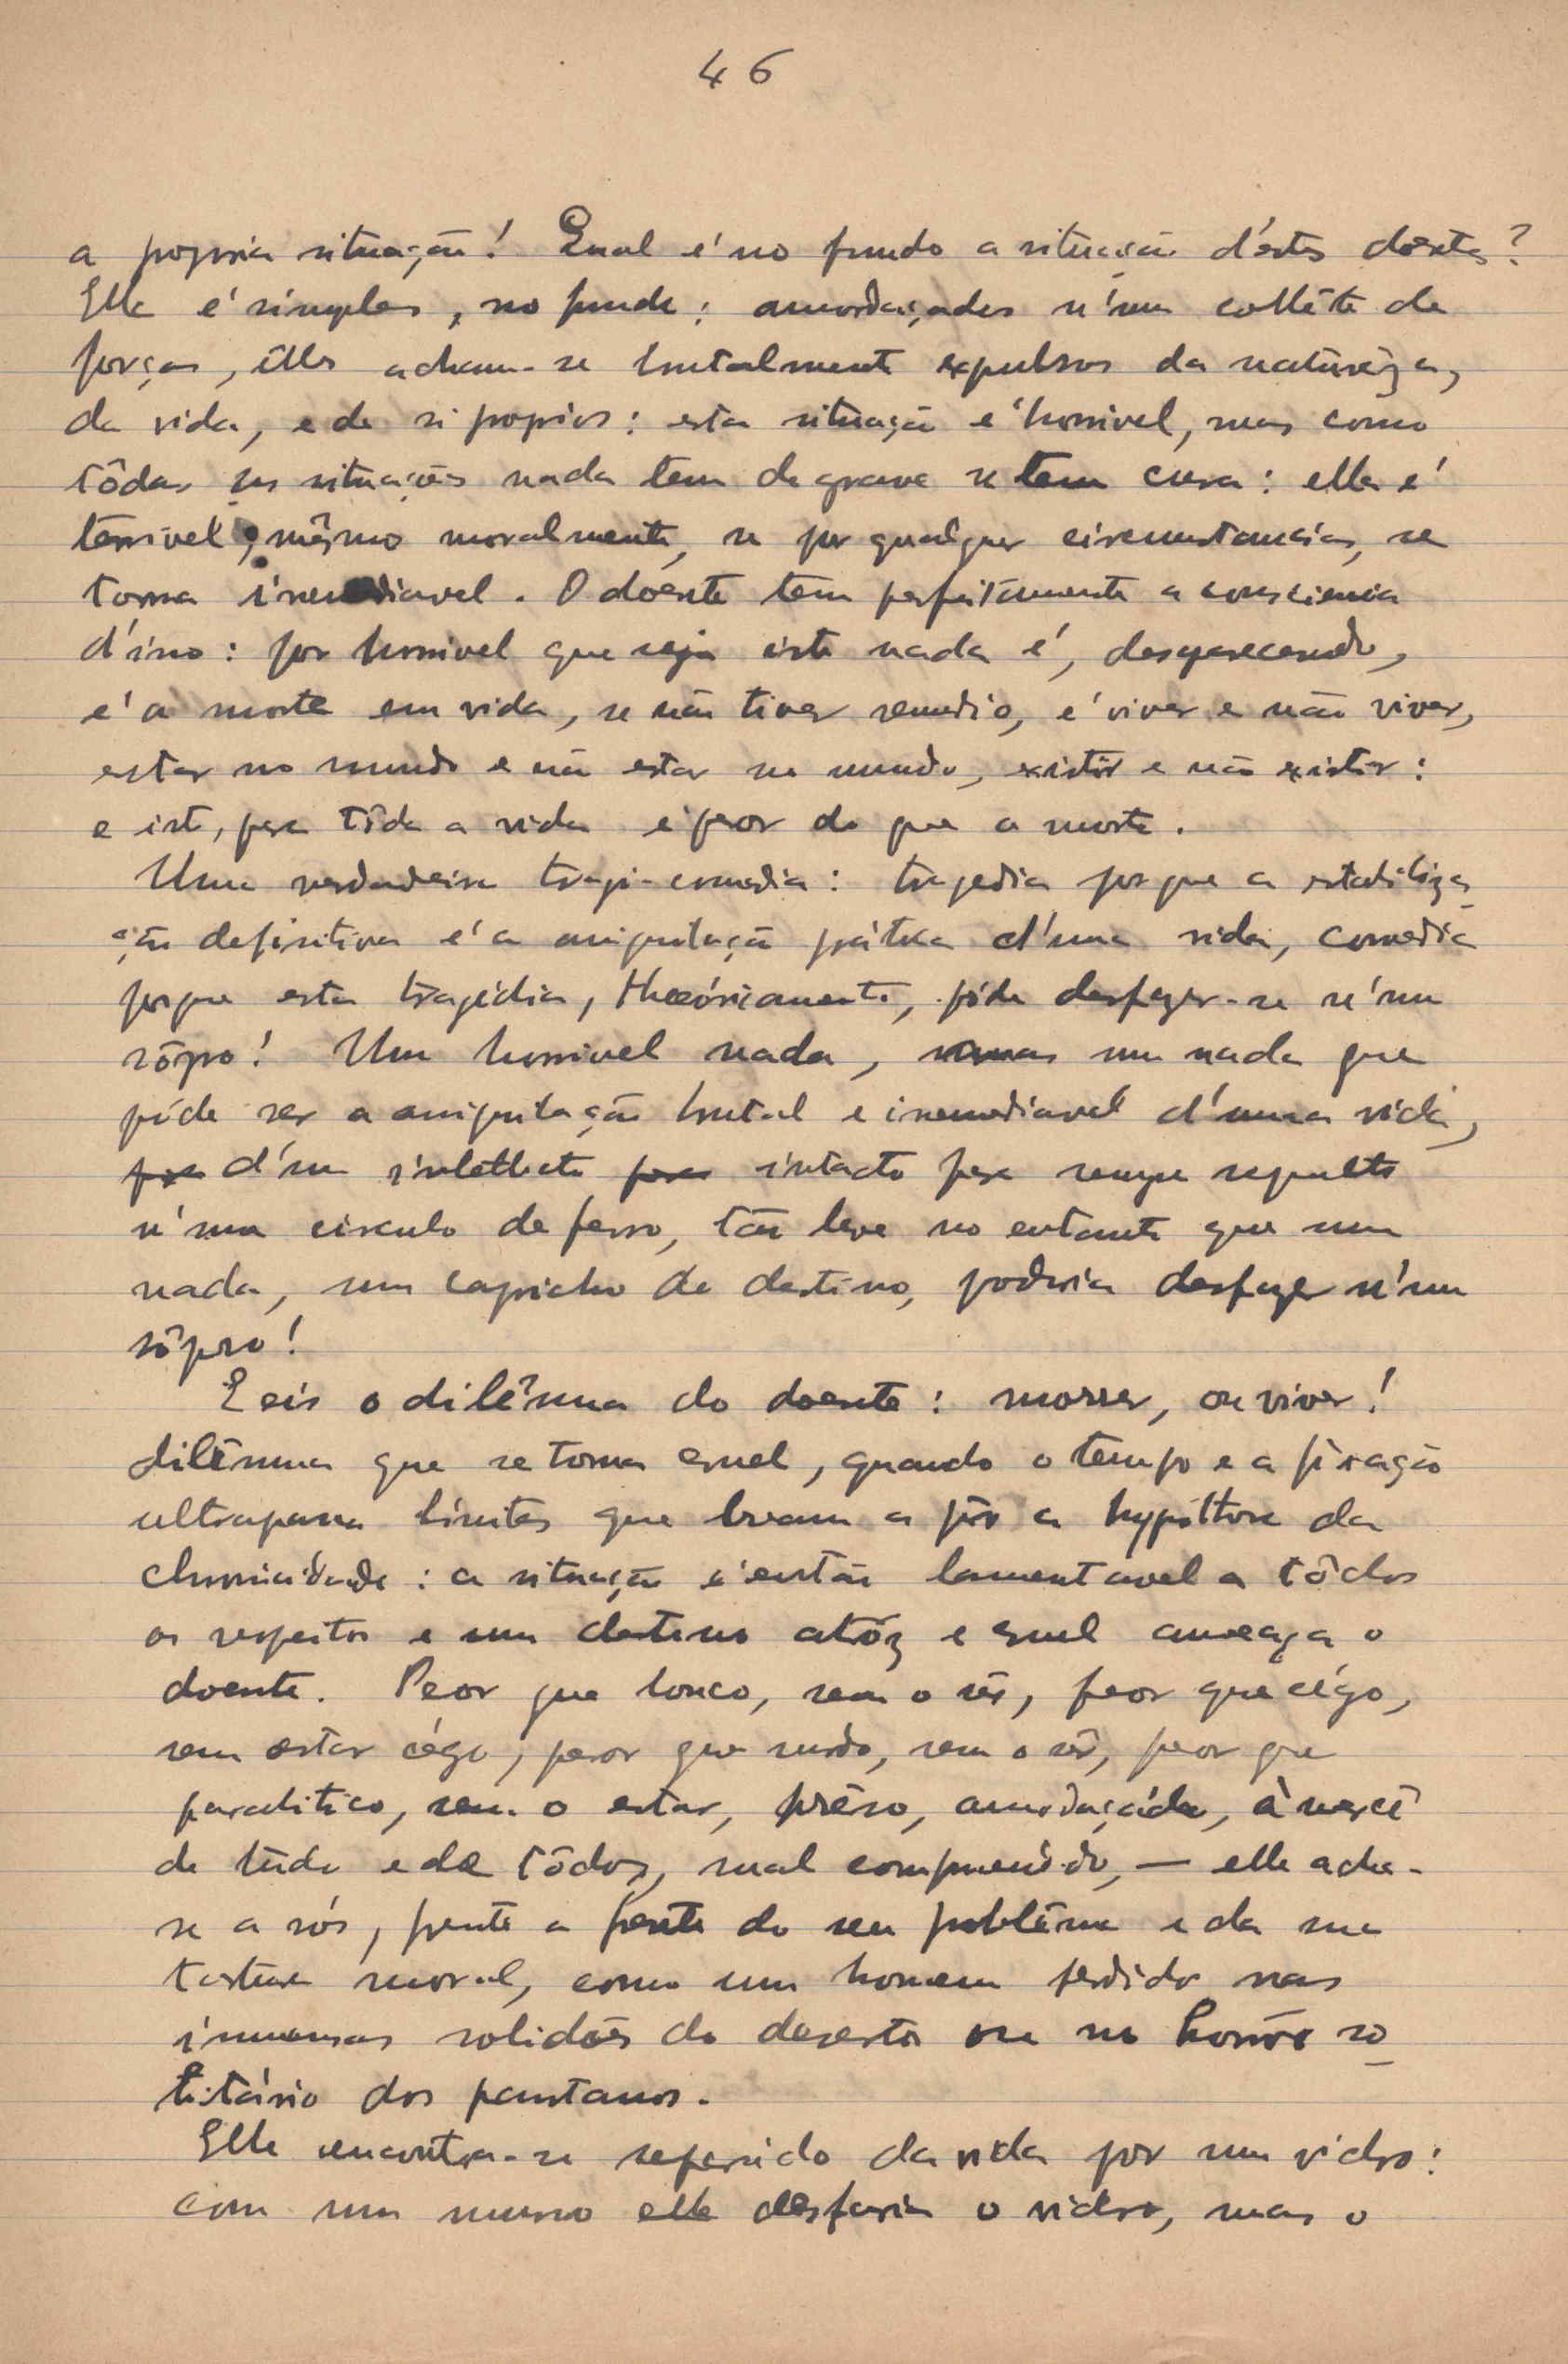 46
a propria situação! Qual é no fundo a situação d'éstes doentes?
Elle é simples, no fundo: amordaçados n'um collête de
forças, êlles acham-se brutalmente expulsos da naturêza,
da vida, e de si proprios: esta situação é horrivel, mas como
tôdas as situações nada tem de grave se tem cura: ella é
terrivel, mêsmo moralmente, se por qualquer circumstancia, se
torna irremediavel. O doente tem perfeitamente a consciencia
d'isso: por horrivel que seja isto nada é, desaparecendo,
é a morte em vida, se não tiver remedio, é viver e não viver,
estar no mundo e não estar no mundo, existir e não existir:
e isto, para tôda a vida é peor do que a morte.
Uma verdadeira tragi-comedia: tragedia porque a estabiliza-
ção definitiva é a amputação prática d'uma vida, comedia
porque esta tragédia, theóricamente, póde desfazer-se n'um
sôpro! Um horrivel nada, mas um nada que
póde ser a amputação brutal e irremediavel d'uma vida,
d'um intellecto intacto para sempre sepulto
n'um circulo de ferro, tão leve no entanto que um
nada, um capricho do destino, poderia desfazer n'um
sôpro!
E eis o dilêmma do doente: morrer, ou viver!
dilêmma que se torna cruel, quando o tempo e a fixação
ultrapassa limites que levam a pôr a hypóthese da
chronicidade: a situação é então lamentavel a tôdos
os respeitos e um destino atróz e cruel ameaça o
doente. Peor que louco, sem o sêr, peor que cégo,
sem estar cégo, peor que surdo, sem o sêr, peor que
paralitico, sem o estar, prêso, amordaçádo, à mercê
de tudo e de tôdos, mal compreendido, — elle acha-
se a sós, frente a frente do seu problêma e da sua
tortura moral, como um homem perdido nas
immensas solidões do deserto ou no horrôr so
litário dos pantanos.
Elle encontra-se separado da vida por um vidro:
com um murro elle desfaria o vidro, mas o